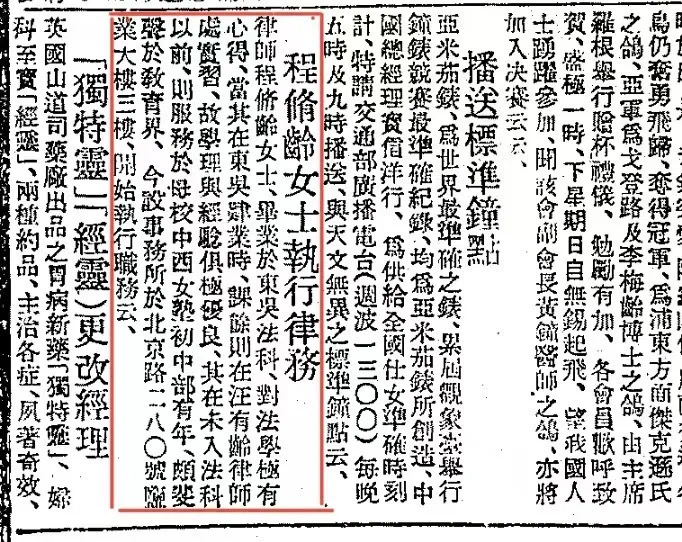 烏仍奮勇飛歸、奪得冠軍、爲浦東方面傑克遜氏
之鴿、亞軍爲戈登路及李梅齡博士之鴿、由主席
羅根舉行贈杯禮儀、勉勵有加、各會員歡呼致
賀、盛極一時、下星期日自無錫起飛、望我國人
士踴躍參加、聞該會副會長黃鐘醫師之鴿、亦將
加入決賽云云、
播送標準鐘點
亞米茄錶、爲世界最準確之錶、累屆觀象臺舉行
鐘錶競賽最準確紀錄、均爲亞米茄錶所創造、中
國總經理寶信洋行、爲供給全國仕女準確時刻
計、特請交通部廣播電台(週波一三〇〇)每晚
五時及九時播送、與天文無異之標準鐘點云、
程脩齡女士執行律務
律師程脩齡女士、畢業於東吳法科、對法學極有
心得、當其在東吳肄業時、課餘則在汪有齡律師
處實習、故學理與經驗俱極優良、其在未入法科
以前、則服務於母校中西女塾初中部有年、頗蜚
聲於教育界、今設事務所於北京路二八〇號鹽
業大樓三樓、開始執行職務云、
「獨特靈」「經靈」更改經理
英國山道司藥廠出品之胃病新藥「獨特靈」、婦
科至寶「經靈」、兩種約品、主治各症、夙著奇效、